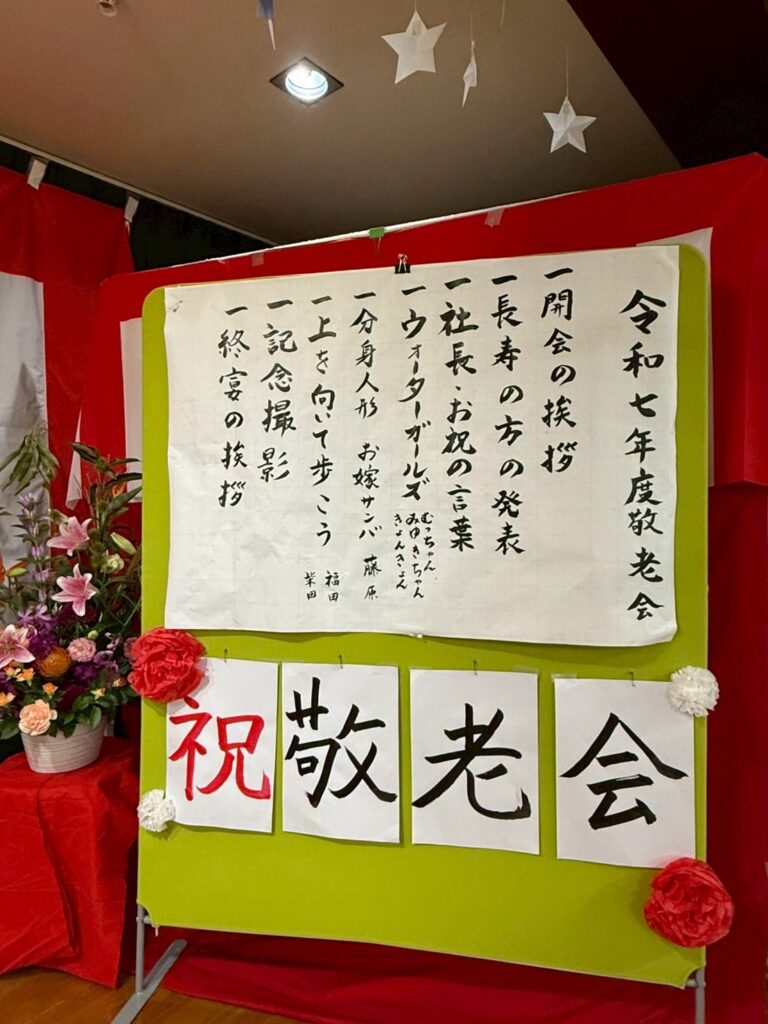 令和七年度敬老会
一開会の挨拶
一長寿の方の発表
一社長・お祝の言葉
一ウォーターガールズ
むっちゃん
みゆきちゃん
きょんきょん
一分身人形 お嫁サンバ 藤原
一上を向いて歩こう 福田
柴田
一記念撮影
一終宴の挨拶
祝敬老会